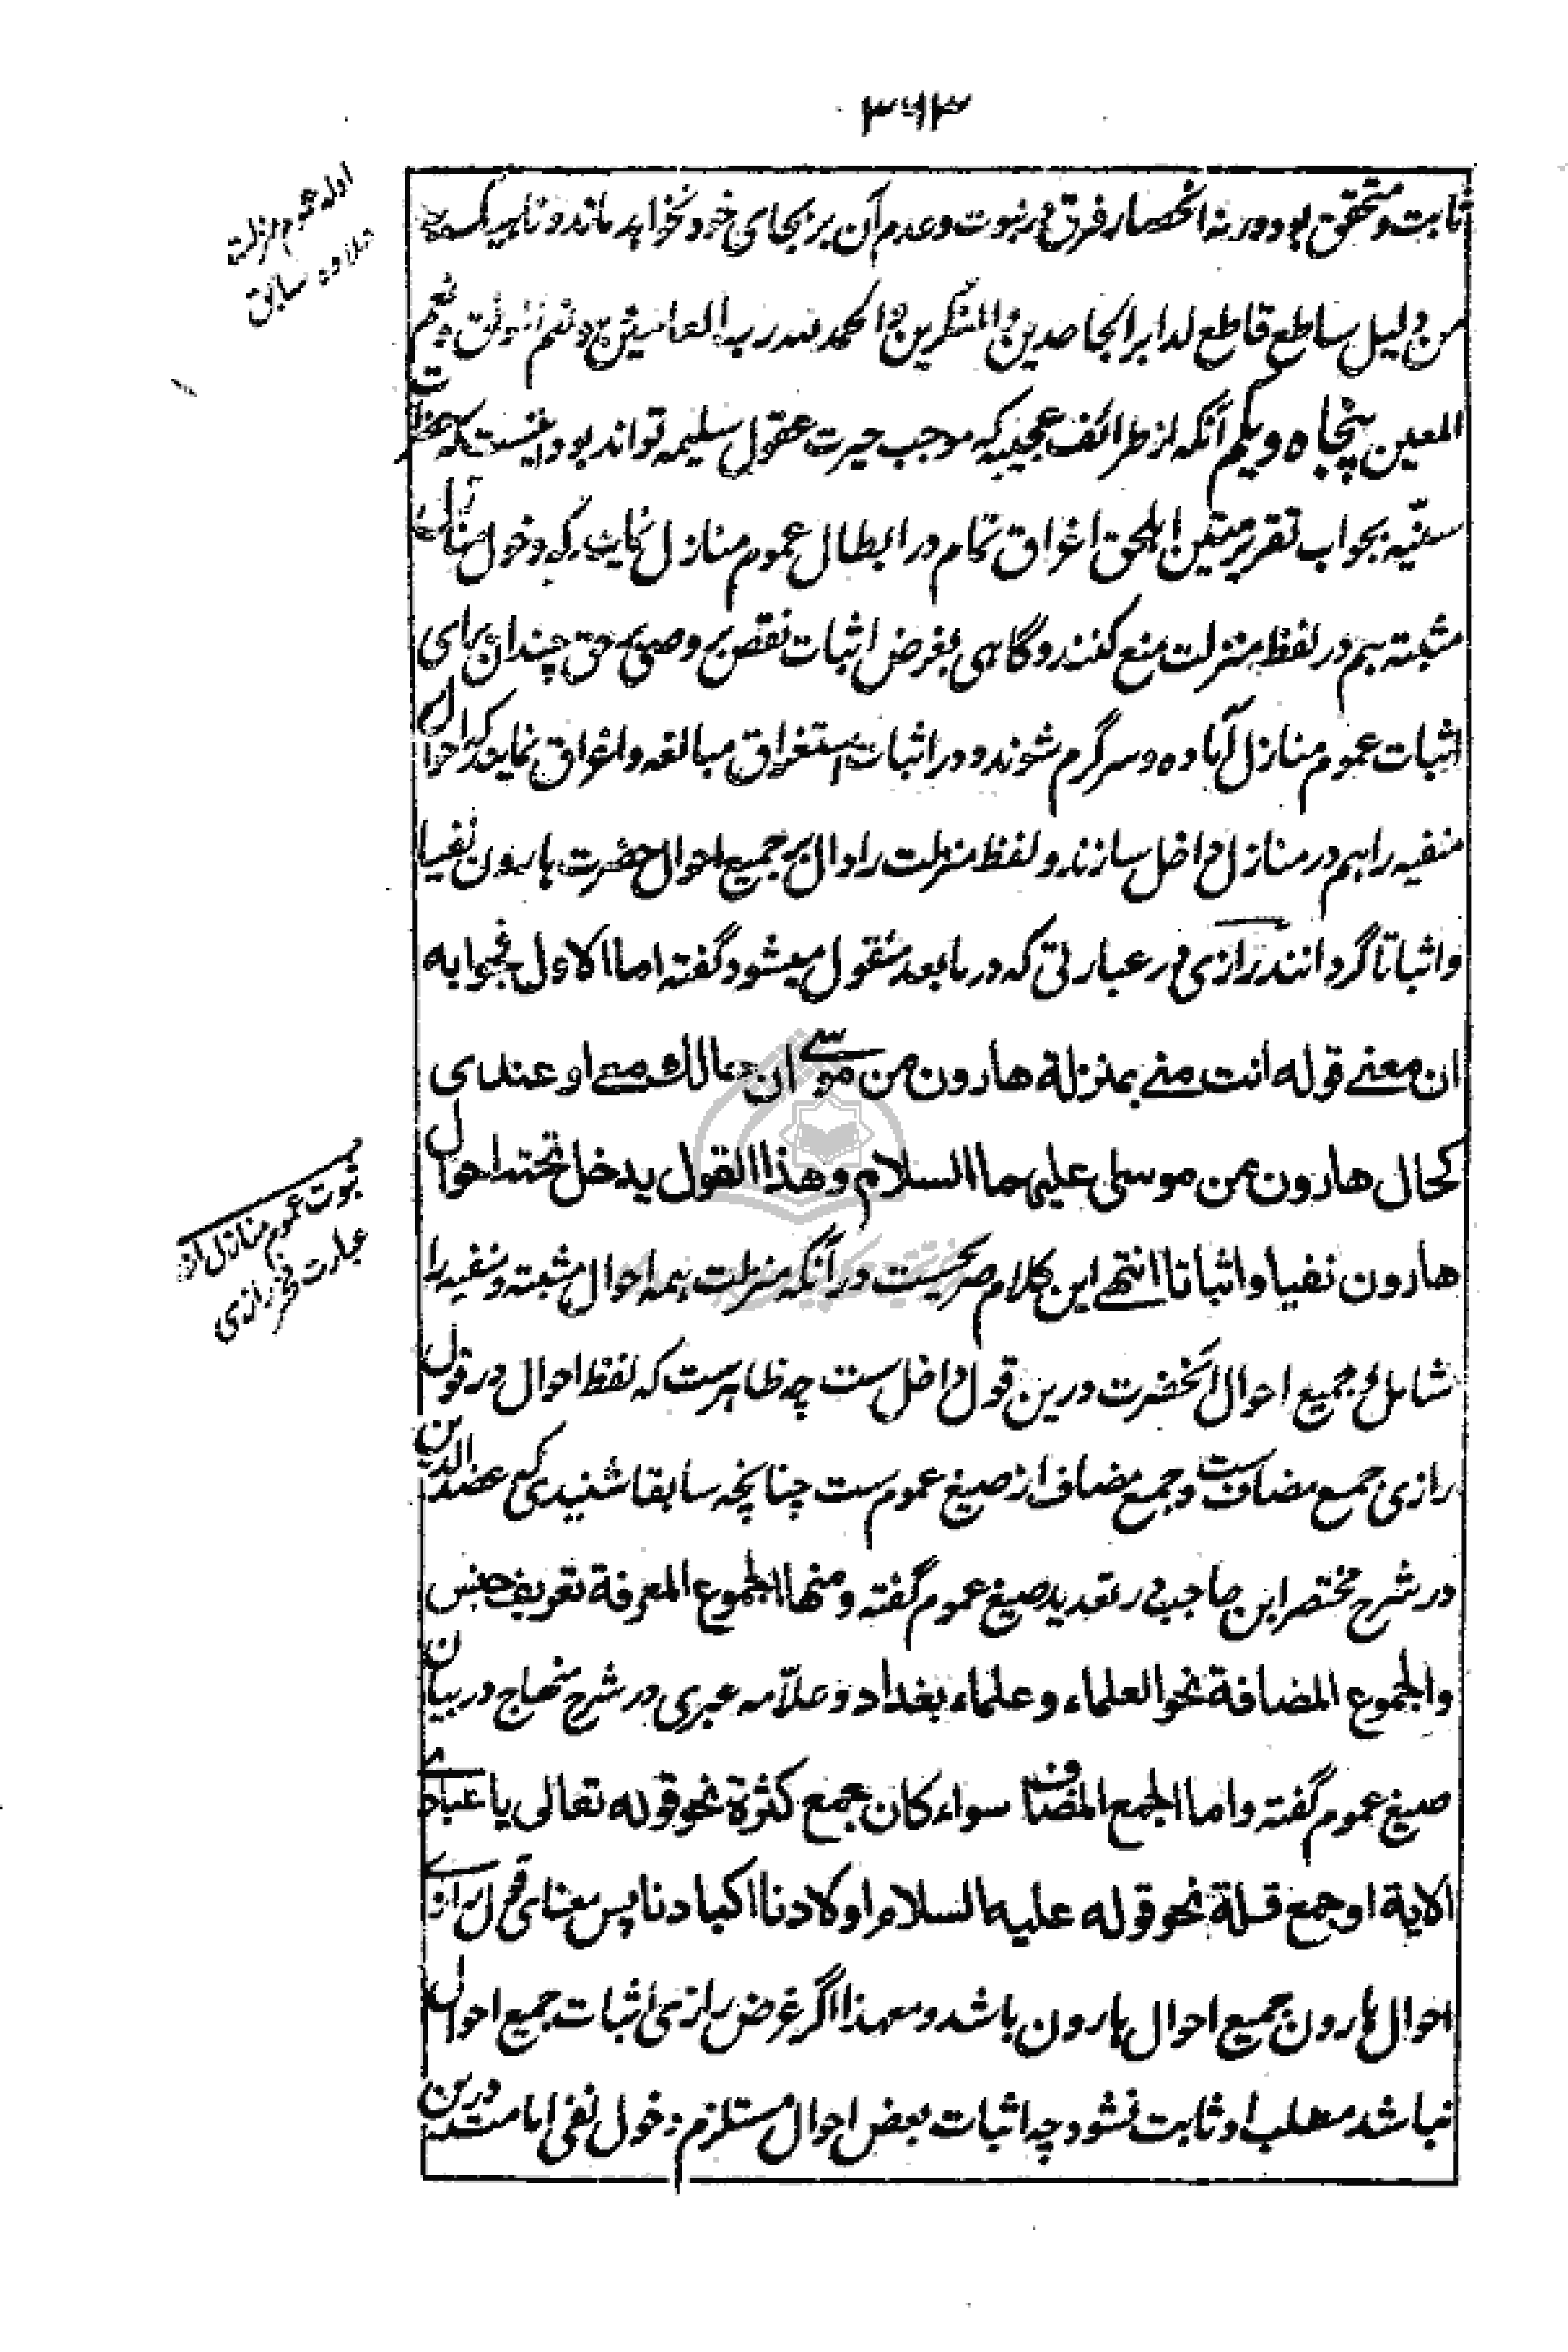 ۳۶۳
ادله عموم منزلت
علاوه سابق
ثابت و متحقق بود و ورنه انحصار فرق در نبوت و عدم آن بر بجای خود نخواهد ماند و ناهیک به
من دلیل ساطع قاطع لدابر الجاحدین و المنکرین و الحمد لله رب العالمین و نعم الموفق و نعم
المعین پنجاه و یکم آنکه از طرائف عجیبه که موجب حیرت عقول سلیمه تواند بود اینست که حضرات
سنیه بجواب تقریر متین اهل حق اغراق تمام در ابطال عموم منازل نمایند که دخول منازل
مثبته هم در لفظ منزلت منع کنند و گاهی بغرض اثبات نقص بر وصی بر حق چندان برای
اثبات عموم منازل آماده و سرگرم شوند و در اثبات استغراق مبالغه و اغراق نمایند که احوال
منفیه را هم در منازل داخل سازند و لفظ منزلت را دال بر جمیع احوال حضرت هارون نفیا
و اثباتا گردانند رازی در عبارتی که در ما بعد منقول میشود گفته اما الاول فجوابه
ان معنی قوله انت منی بمنزلة هارون من موسی ان حالک معی او عندی
کحال هارون من موسی علیهما السلام و هذا القول یدخل تحته احوال
هارون نفیا و اثباتا انتهی این کلام صریحست در آنکه منزلت همه احوال مثبته و منفیه را
ثبوت عموم منازل از
عبارت فخر رازی
شامل و جمیع احوال آنحضرت درین قول داخل ست چه ظاهرست که لفظ احوال در قول
رازی جمع مضاف ست و جمع مضاف از صیغ عموم ست چنانچه سابقا شنیدی که عضد الدین
در شرح مختصر ابن حاجب در تعدید صیغ عموم گفته و منها الجموع المعرفة تعریف جنس
و الجموع المضافة نحو العلماء و علماء بغداد و علّامه عبری در شرح منهاج در بیان
صیغ عموم گفته و اما الجمع المضاف سواء کان جمع کثرة نحو قوله تعالی یا عبادی
الایة او جمع قلة نحو قوله علیه السلام اولادنا اکبادنا پس معنای قول رازی
احوال هارون جمیع احوال هارون باشد و معهذا اگر غرض رازی اثبات جمیع احوال
نباشد مطلب او ثابت نشود چه اثبات بعض احوال مستلزم دخول نفی امامت درین